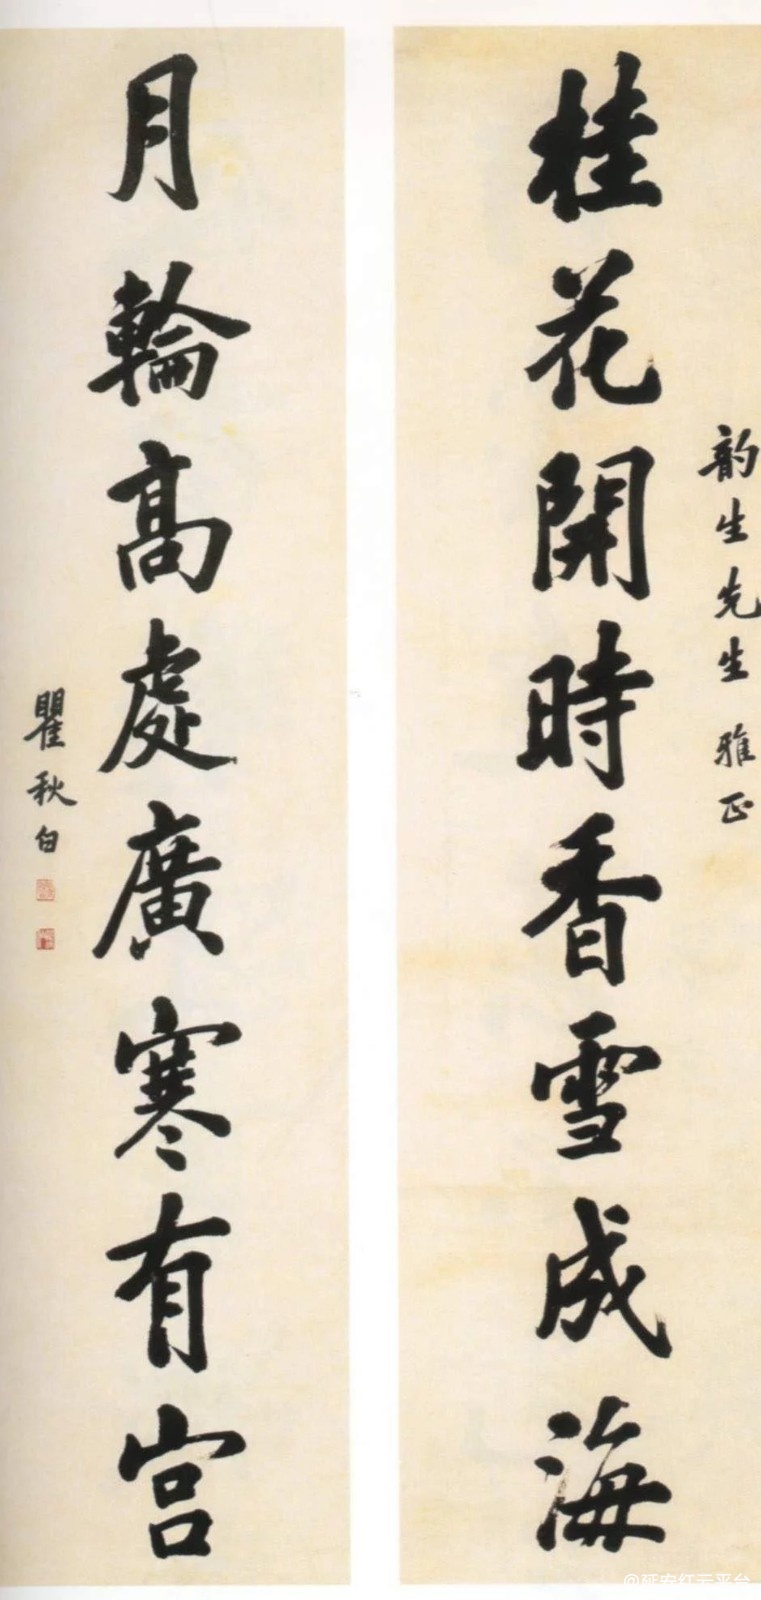 韵生先生雅正
桂花開時香雪成海
月輪高處廣寒有宫
瞿秋白
@延安红云平台